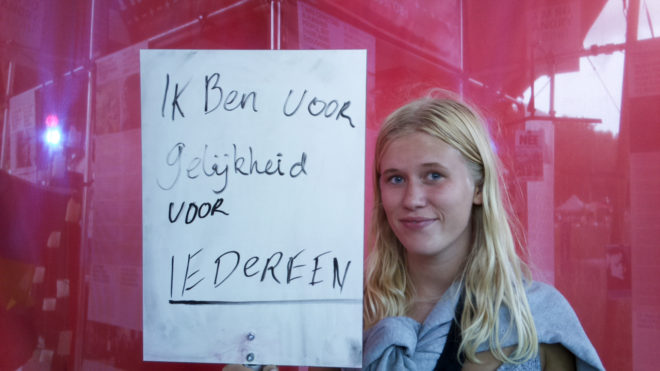 IK Ben VOOR
gelijkheid
VOOR
IEDEREEN